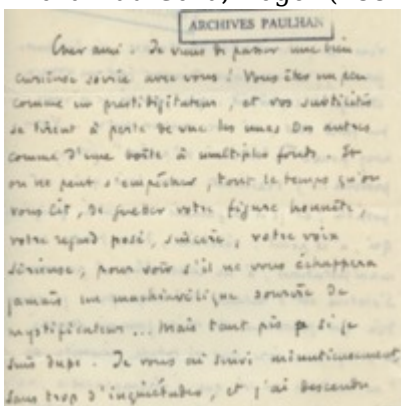 ARCHIVES PAULHAN
Cher ami : Je viens de passer une bien
curieuse soirée avec vous ! Vous êtes un peu
comme un prestidigitateur, et vos subtilités
se tirent à perte de vue les unes des autres
comme d'une boîte à multiples fonds. Et
on ne peut s'empêcher, tout le temps qu'on
vous lit, de guetter votre figure honnête,
votre regard posé, sincère, votre voix
sérieuse, pour voir s'il ne vous échappera
jamais un machiavélique sourire de
mystificateur... Mais tant pis si je
suis dupe. Je vous ai suivi minutieusement,
sans trop d'inquiétudes, et j'ai descendu